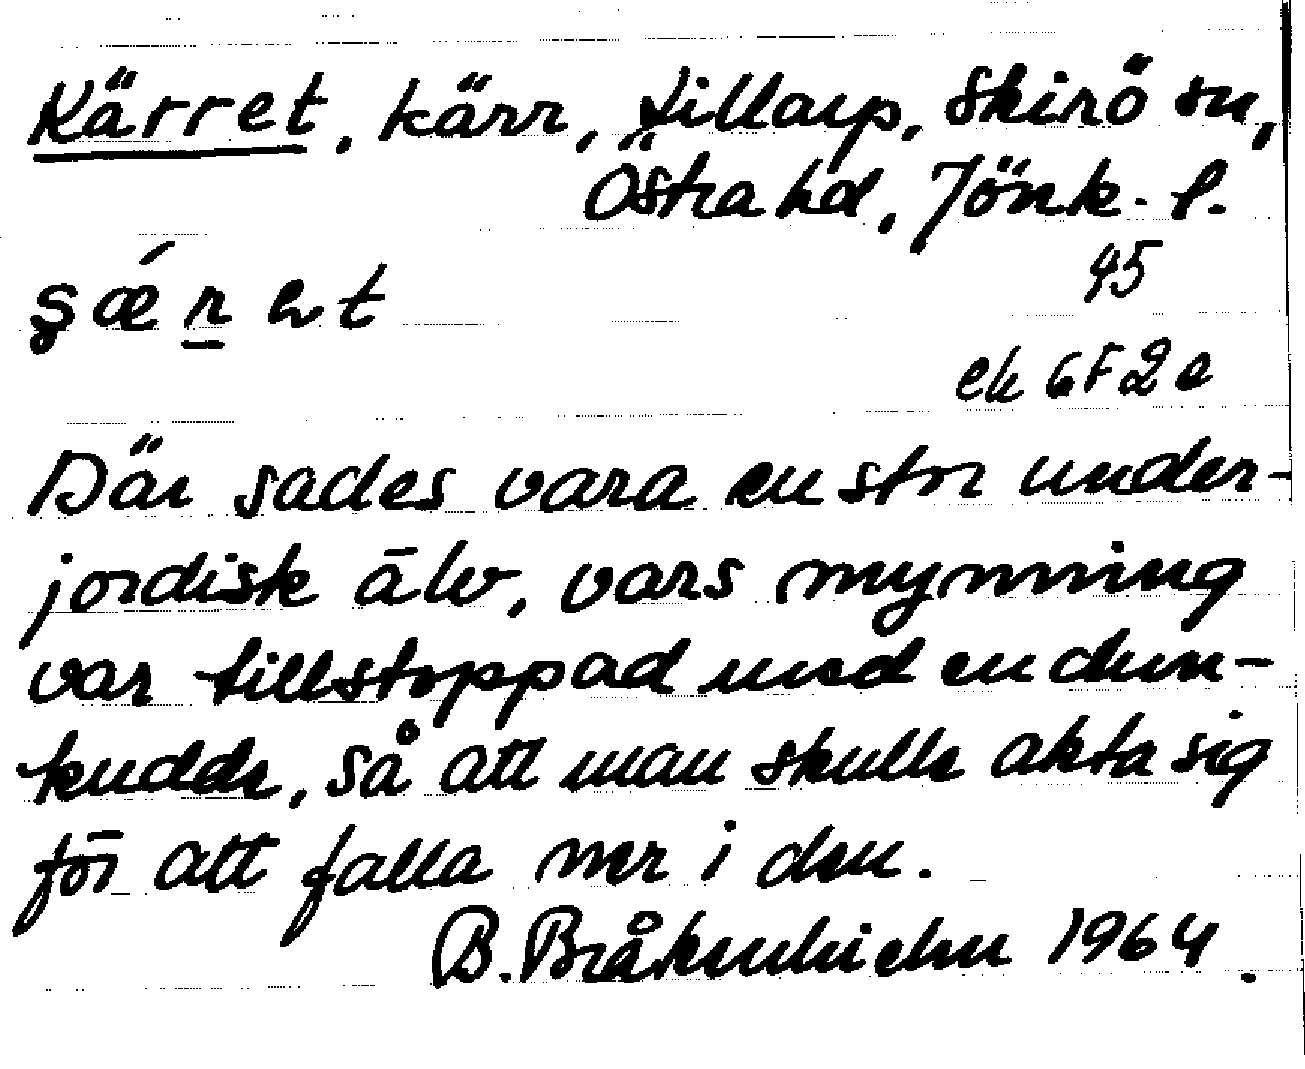 Kärret, kärr, Lillarp, Skirö sn,
Östra hd, Jönk. l.
45
ek 6F2e
Där sades vara en stor under-
jordisk älv, vars mynning
var tillstoppad med en dun-
kudde, så att man skulle akta sig
för att falla ner i den.
B. Bråkenhielm 1964.